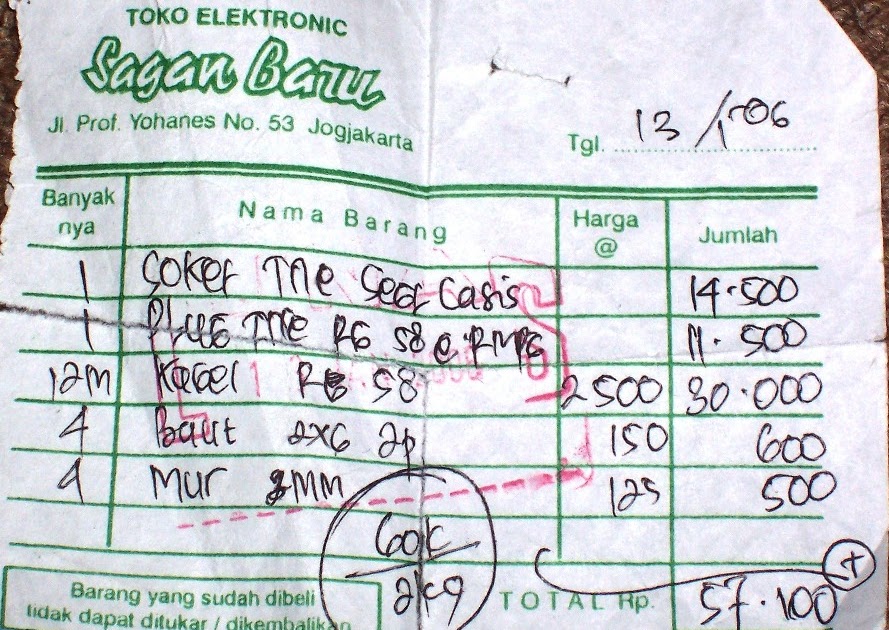 TOKO ELEKTRONIC
Sagan Baru
Jl. Prof. Yohanes No. 53 Jogjakarta
Tgl. 13/1-06
Banyak nya Nama Barang Harga @ Jumlah
1 Soket TNC Seet Casis 14.500
1 PLUG TNC RG 58 C.RMPG 11.500
12M Kabel RG 58 2500 30.000
4 Baut 2x6 2p 150 600
4 Mur 2MM 125 500
60k
2kg
+
TOTAL Rp. 57.100
Barang yang sudah dibeli
tidak dapat ditukar / dikembalikan